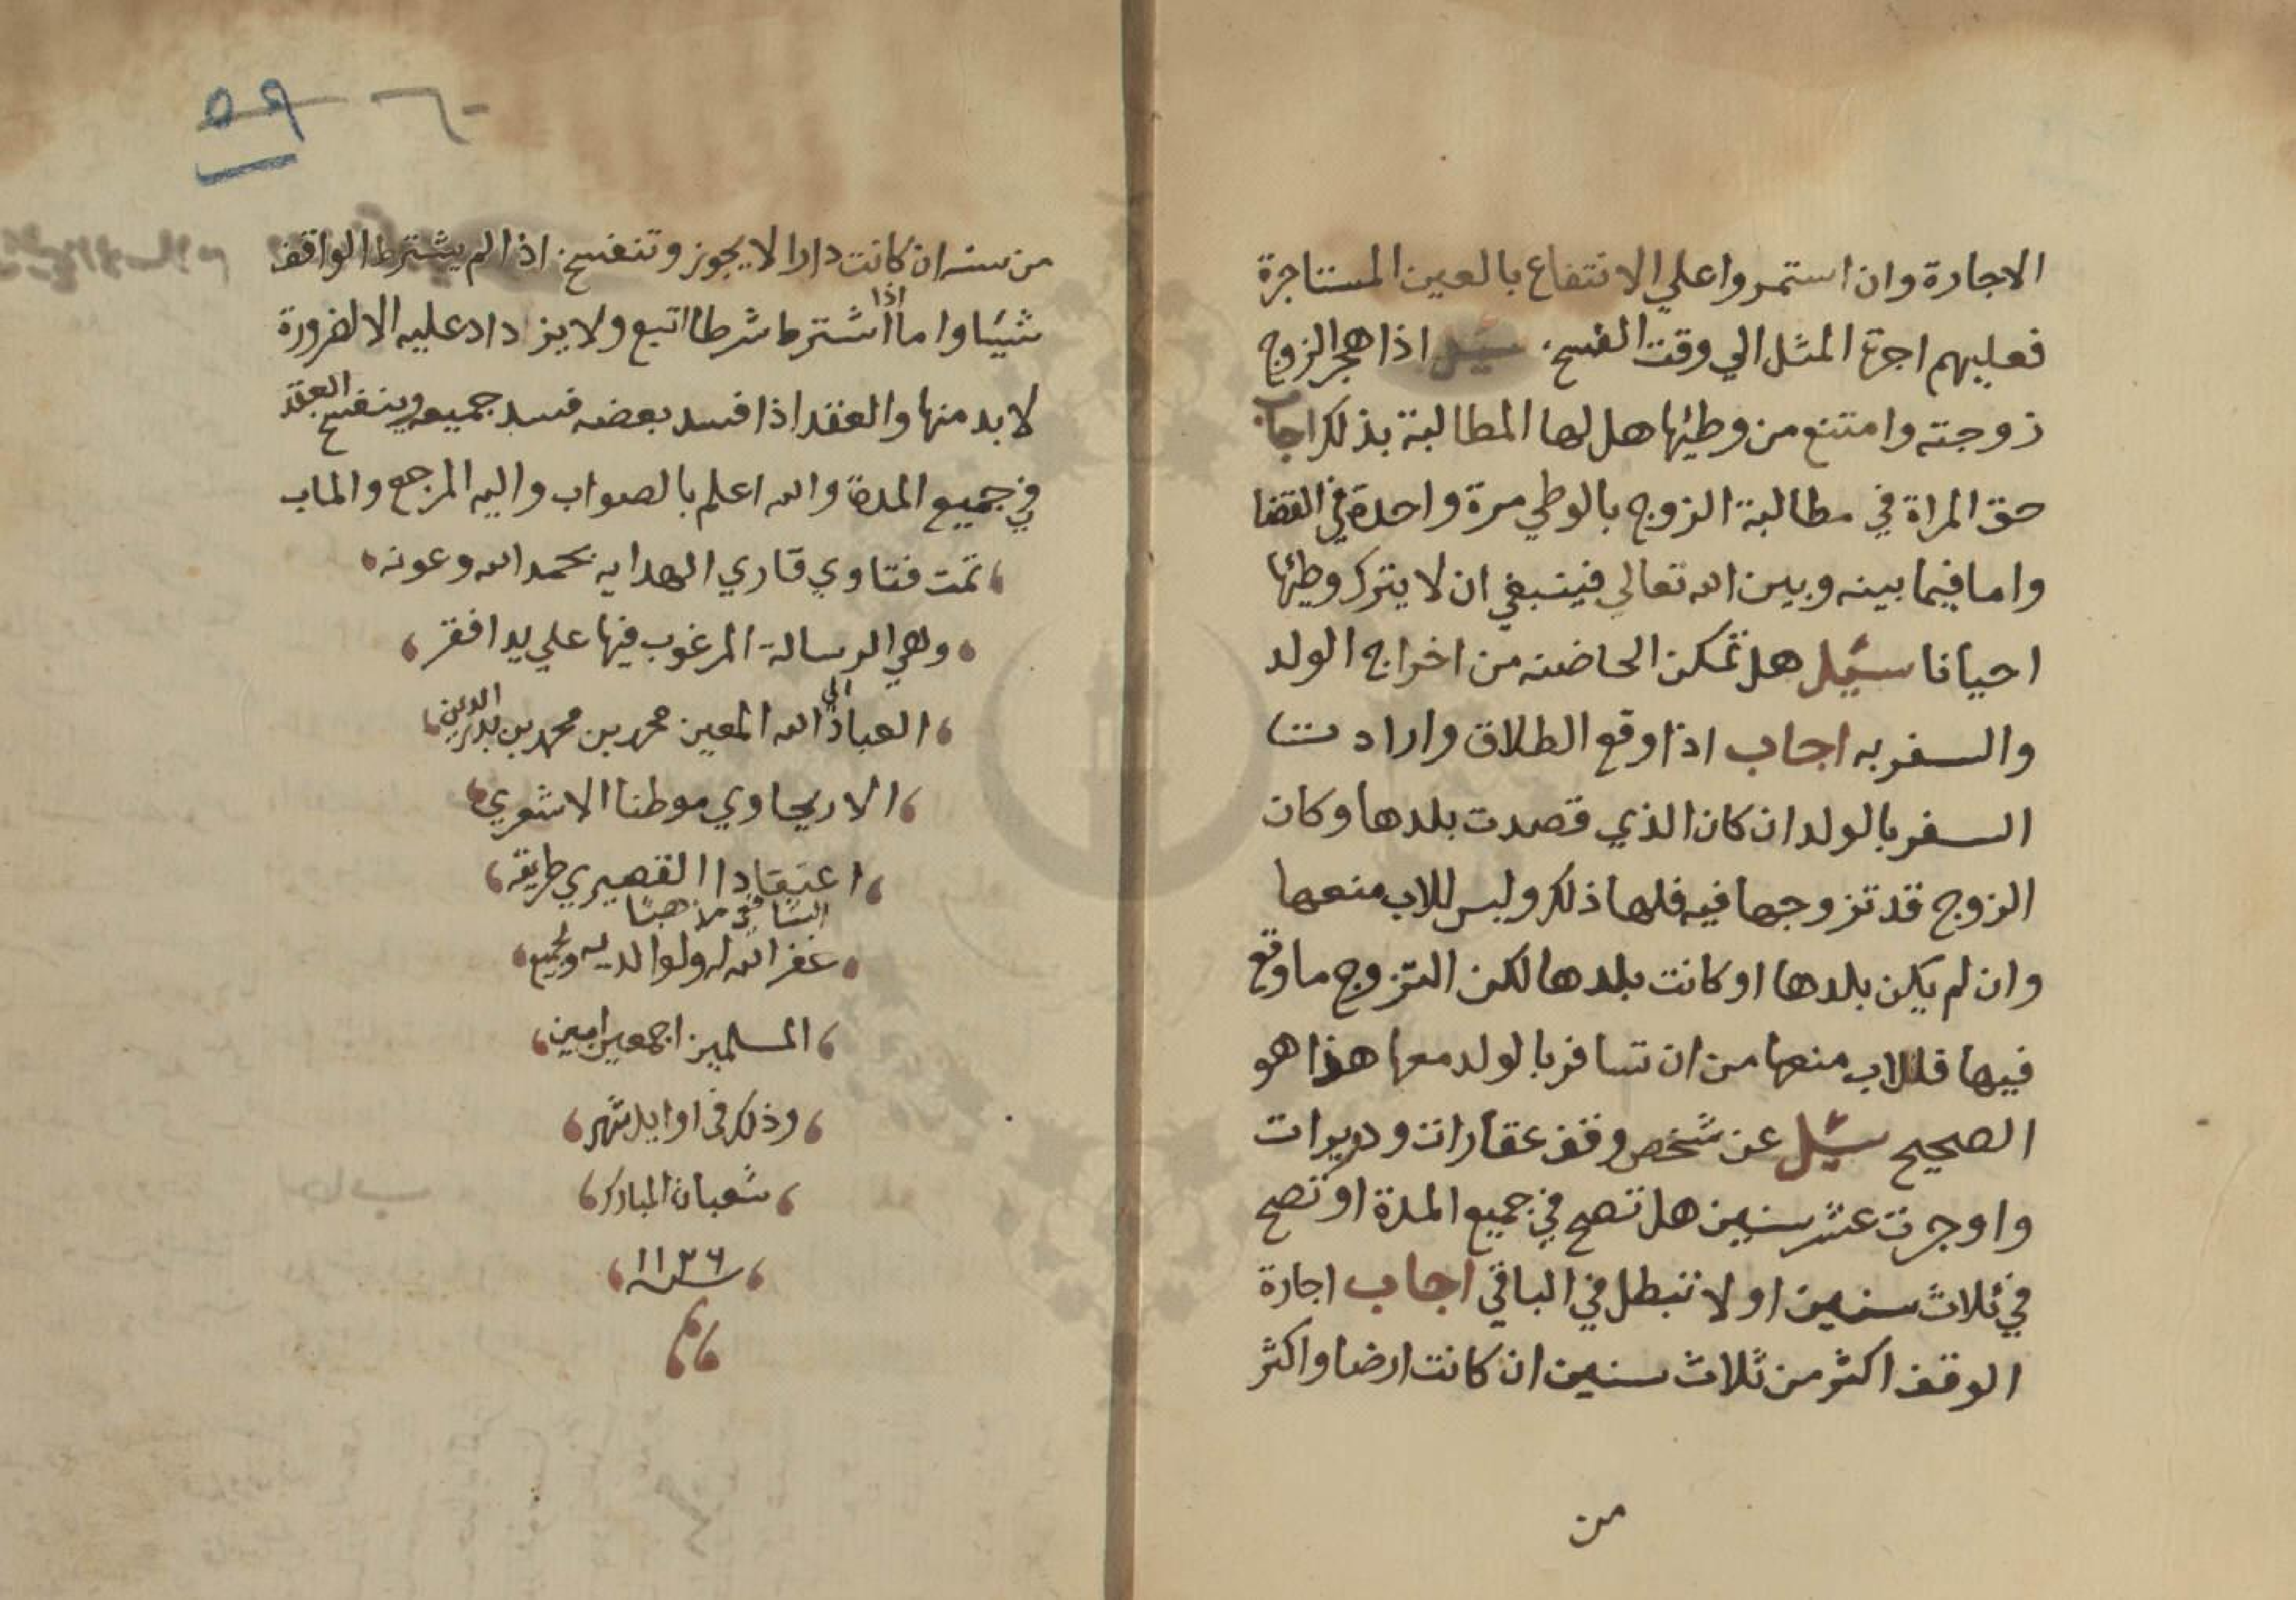 الاجارة وان استمروا علي الانتفاع بالعين المستاجرة
فعليهم اجرة المثل الي وقت الفسخ. سئيل اذا هجر الزوج
زوجته وامتنع من وطئها هل لها المطالبة بذلك اجاب
حق المراة في مطالبة الزوج بالوطي مرة واحدة في القضا
واما فيما بينه وبين الله تعالي فينبغي ان لا يترك وطئها
احيانا سئيل هل تمكن الحاضنه من اخراج الولد
والسفر به اجاب اذا وقع الطلاق وارادت
السفر بالولد ان كان الذي قصدت بلدها وكان
الزوج قد تزوجها فيه فلها ذلك وليس للاب منعها
وان لم يكن بلدها او كانت بلدها لكن التزوج ما وقع
فيها فللاب منعها من ان تسافر بالولد معها هذا هو
الصحيح سئيل عن شخص وقف عقارات ودويرات
واوجرت عشر سنين هل تصح في جميع المدة او تصح
في ثلاث سنين او لا تبطل في الباقي اجاب اجارة
الوقف اكثر من ثلاث سنين ان كانت ارضا واكثر
من
٥٩ ٦٠
من سنه ان كانت دارا لا يجوز وتنفسخ اذا لم يشترط الواقف
شيئا واما اذا اشترط شرطا اتبع ولا يزداد عليه الا لضرورة
لا بد منها والعقد اذا فسد بعضه فسد جميعه وينفسخ العقد
في جميع المدة والله اعلم بالصواب واليه المرجع والماب
تمت فتاوي قاري الهدايه بحمد الله وعونه
وهي الرسالة المرغوب فيها علي يد افقر
العباد الي الله المعين محمد بن محمد بن بدر الدين
الاريحاوي موطنا الاشعري
اعتقادا القصيري طريقه
الشافعي مذهبا
غفر الله له ولوالديه ولجميع
المسلمين اجمعين امين
وذلك في اوايل شهر
شعبان المبارك
سنه ١١٣٦